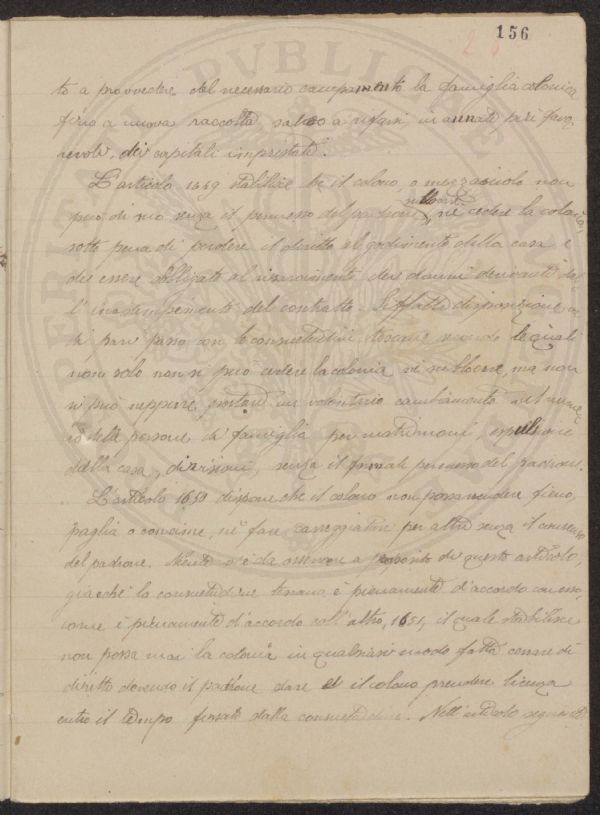 156
26
to a provvedere del necessario campamento la famiglia colonica
fino a nuova raccolta salvo a rifarsi in annate più favo
revoli, dei capitali imprestati.
L'articolo 1649 stabilisce che il colono, o mezzaiuolo non
può di suo senza il permesso del padrone sublocare, nè cedere la colonia,
sotto pena di perdere il diritto al godimento della casa e
di essere obbligato al risarcimento dei danni derivanti dal
l'inadempimento del contratto. Siffatta disposizione va
di pari passo con le consuetudini toscane secondo le quali
non solo non si può cedere la colonia, nè sublocare, ma non
si può neppure portare un volontario cambiamento nel nume
ro delle persone di famiglia per matrimoni, espulsioni
dalla casa, divisioni, senza il formale permesso del padrone.
L'articolo 1650 dispone che il colono non possa vendere fieno,
paglia o concime, nè fare carreggiature per altri senza il consenso
del padrone. Niente v'è da osservare a proposito di questo articolo,
giacchè la consuetudine toscana è pienamente d'accordo con esso,
come è pienamente d'accordo coll'altro, 1651, il quale stabilisce
non possa mai la colonia in qualsiasi modo fatta cessare di
diritto dovendo il padrone dare ed il colono prendere licenza
entro il tempo fissato dalla consuetudine. Nell'articolo seguente